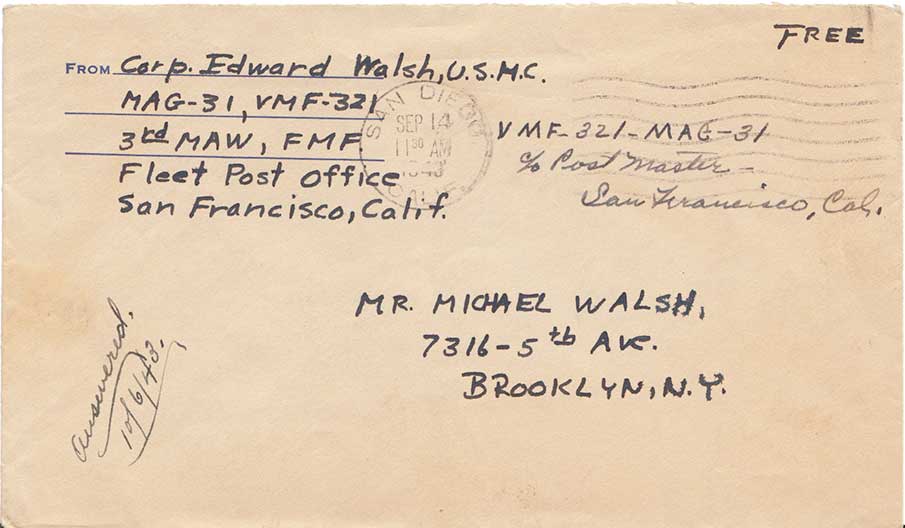 FREE
FROM Corp. Edward Walsh, U.S.M.C.
MAG-31, VMF-321
3rd MAW, FMF
Fleet Post Office
San Francisco, Calif.
SAN DIEGO
SEP 14
11 30 AM
1943
CALIF.
VMF-321-MAG-31
c/o Post Master-
San Francisco, Cal.
MR. MICHAEL WALSH,
7316-5th AVE.
BROOKLYN, N.Y.
Answered.
10/6/43.